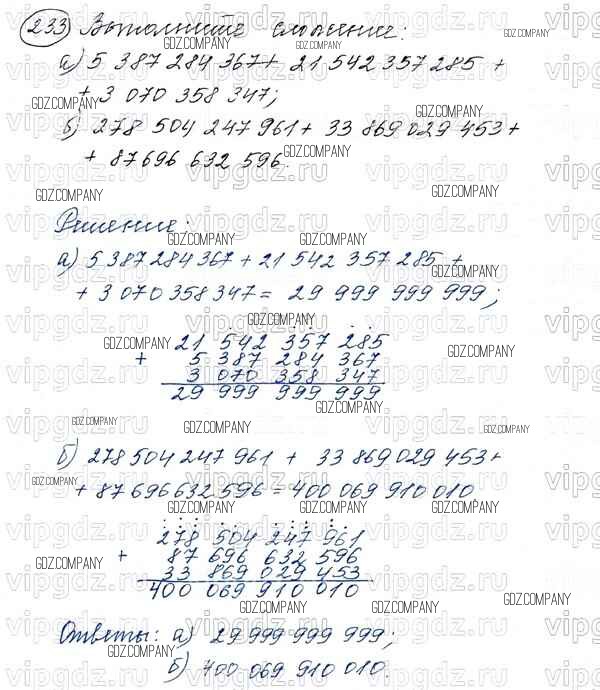 233 Выполните сложение:
а) 5 387 284 367 + 21 542 357 285 +
+ 3 070 358 347;
б) 278 504 247 961 + 33 869 029 453 +
+ 87 696 632 596.
Решение:
а) 5 387 284 367 + 21 542 357 285 +
+ 3 070 358 347 = 29 999 999 999;
21 542 357 285
+ 5 387 284 367
3 070 358 347
29 999 999 999
б) 278 504 247 961 + 33 869 029 453 +
+ 87 696 632 596 = 400 069 910 010
278 504 247 961
+ 87 696 632 596
33 869 029 453
400 069 910 010
Ответы: а) 29 999 999 999;
б) 400 069 910 010.
GDZ.COMPANY
vipgdz.ru